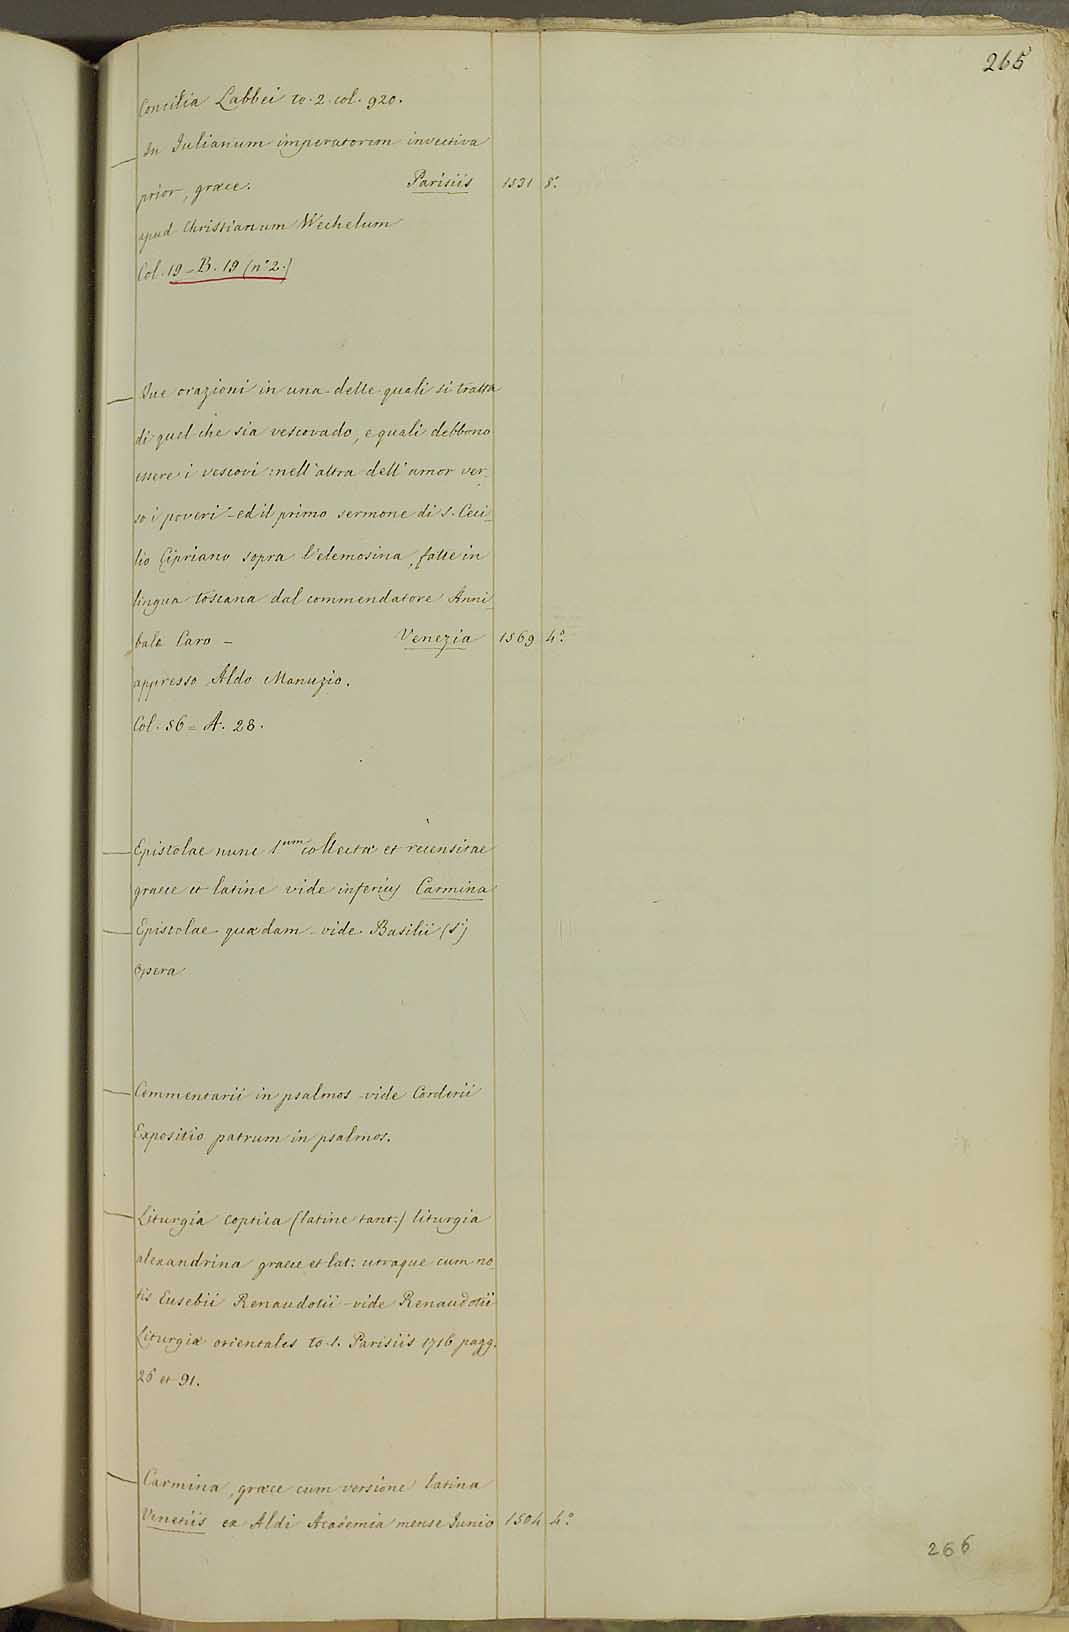 265
Concilia Labbei to. 2. col. 920.
— In Iulianum imperatorem invectiva
prior, græce. Parisiis 1531 8.°
apud Christianum Wechelum
Col. 19 - B. 19 (n° 2.)
— Due orazioni in una delle quali si tratta
di quel che sia vescovado, e quali debbono
essere i vescovi: nell'altra dell'amor ver-
so i poveri - ed il primo sermone di s. Ceci-
lio Cipriano sopra l'elemosina, fatte in
lingua toscana dal commendatore Anni-
bale Caro — Venezia 1569 4.°
appresso Aldo Manuzio.
Col. 56 = A. 28.
— Epistolae nunc 1um collectæ et recensitae
graece et latine vide inferius Carmina
— Epistolae quædam - vide Basilii (Si)
opera
— Commentarii in psalmos - vide Corderii
Expositio patrum in psalmos.
— Liturgia coptica (latine tant:) liturgia
alexandrina graece et lat: utraque cum no-
tis Eusebii Renaudotii - vide Renaudotii
Liturgiæ orientales to. 1. Parisiis 1716 pagg.
26 et 91.
— Carmina, græce cum versione latina
Venetiis ex Aldi Academia mense Iunio 1504 4.°
266